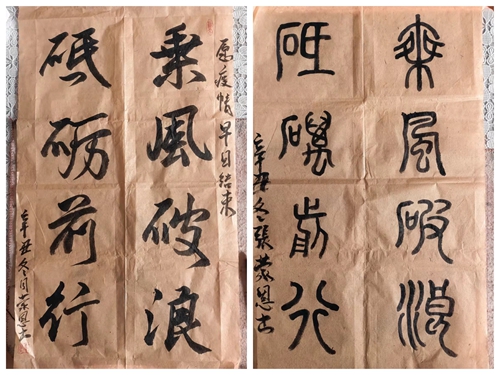 愿疫情早日结束
乘風破浪
砥砺前行
辛丑冬月蒙恩书
乘風破浪
砥礪前行
辛丑冬張蒙恩书